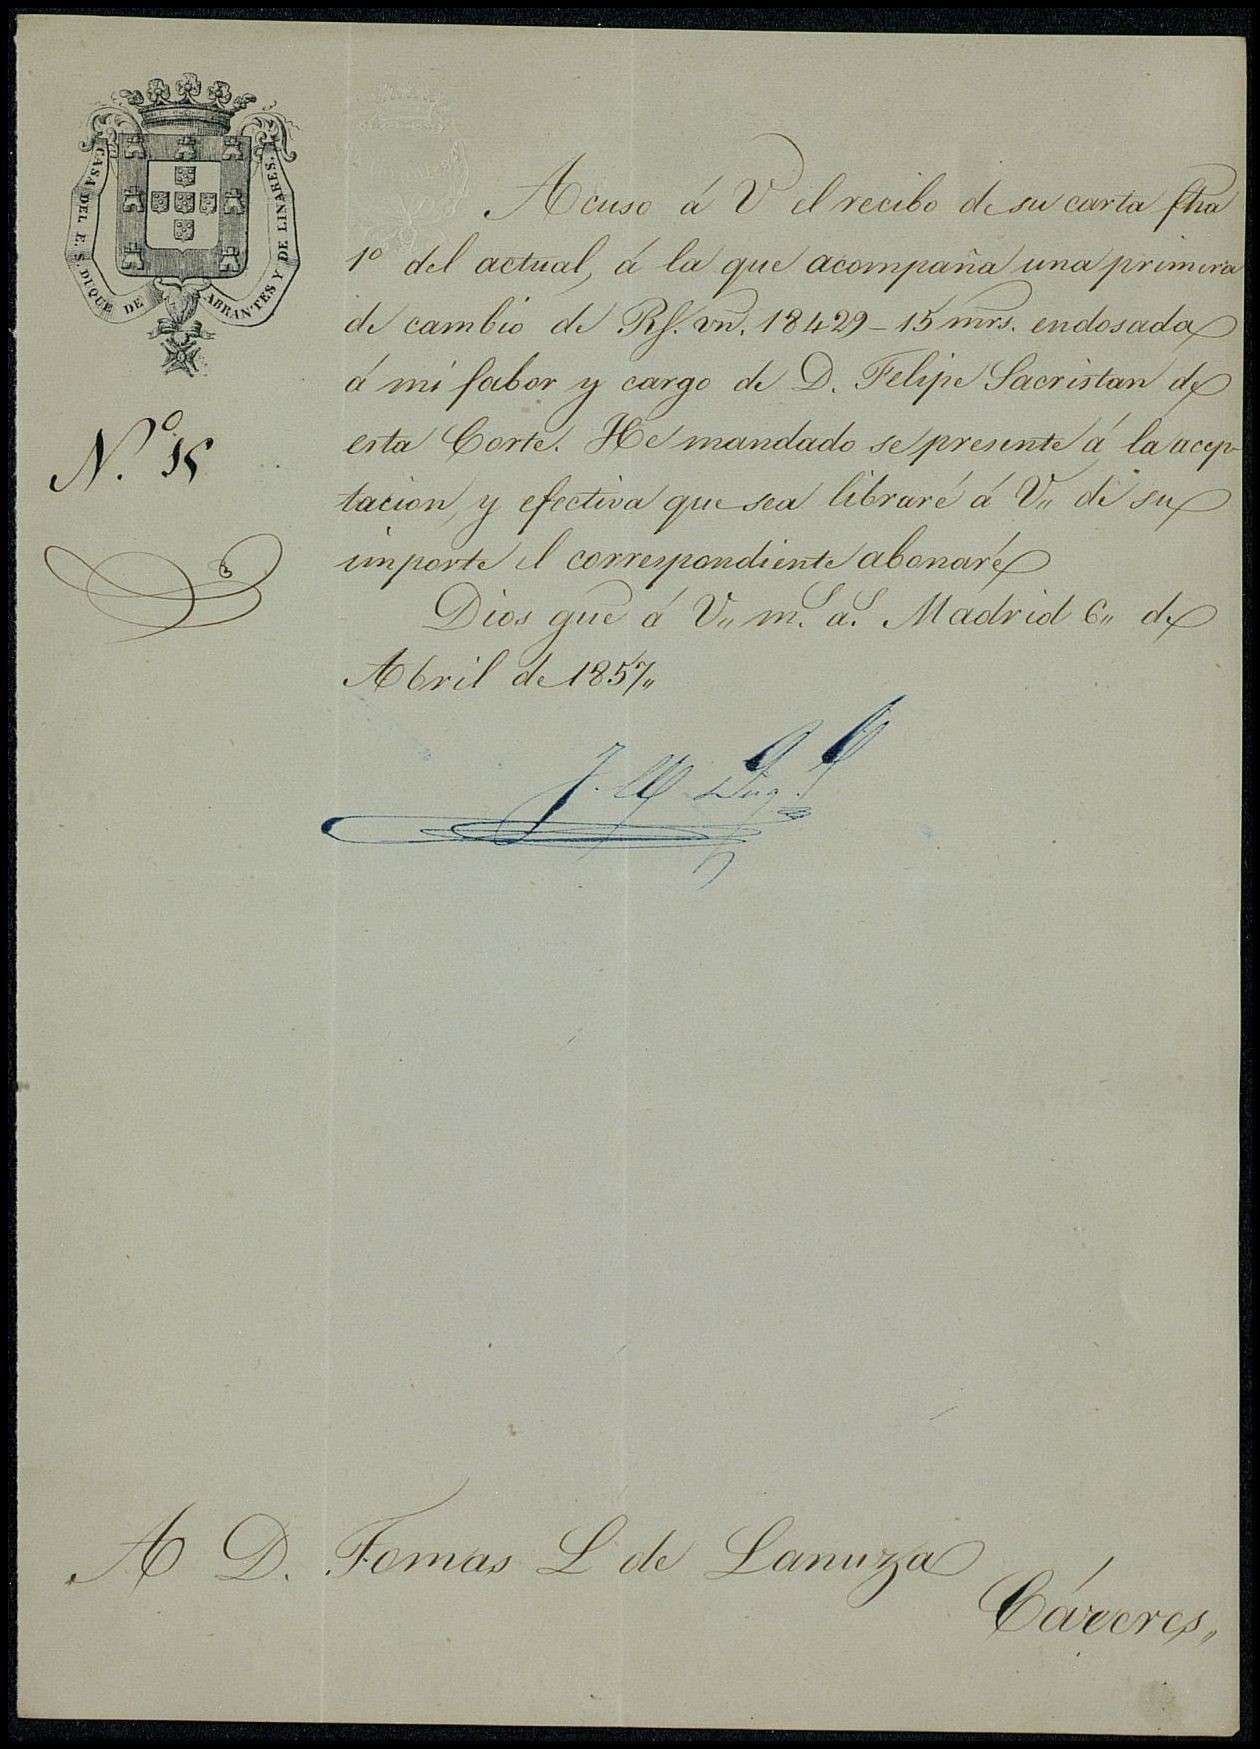 CASA DEL E. S. DUQUE DE ABRANTES Y DE LINARES.
Acuso á V el recibo de su carta fha
1º del actual, á la que acompaña una primera
de cambio de Rs. vn. 18429-15 mrs. endosada
á mi fabor y cargo de D. Felipe Sacristan de
esta Corte. He mandado se presente á la acep-
tacion, y efectiva que sea libraré á V,, de su
importe el correspondiente abonaré
Dios gue á V,, m.s a.s Madrid 6,, de
Abril de 1857,,
N.º 15
A D. Tomas L de Lanuza
Cáceres,,